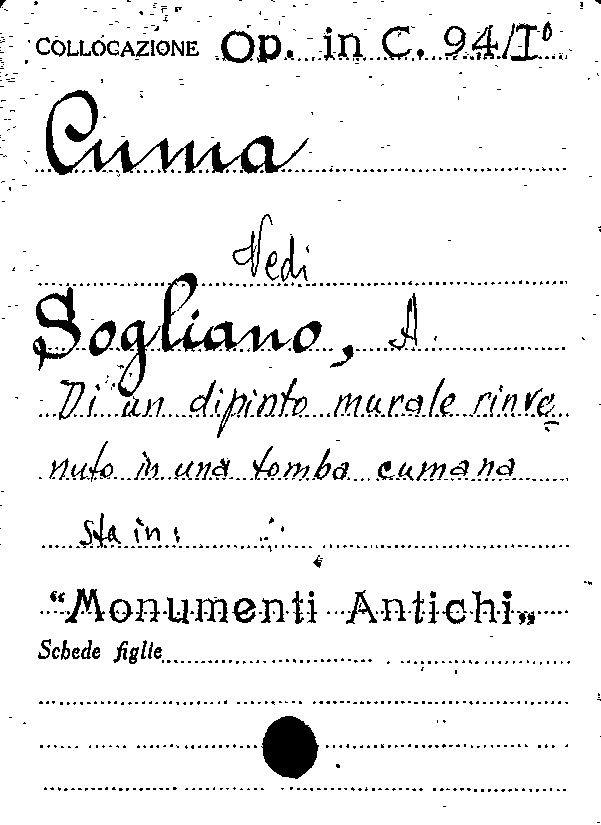 COLLOCAZIONE Op. in C. 94/I°
Cuma
Vedi
Sogliano, A.
Di un dipinto murale rinve
nuto in una tomba cumana
sta in:
“Monumenti Antichi„
Schede figlie